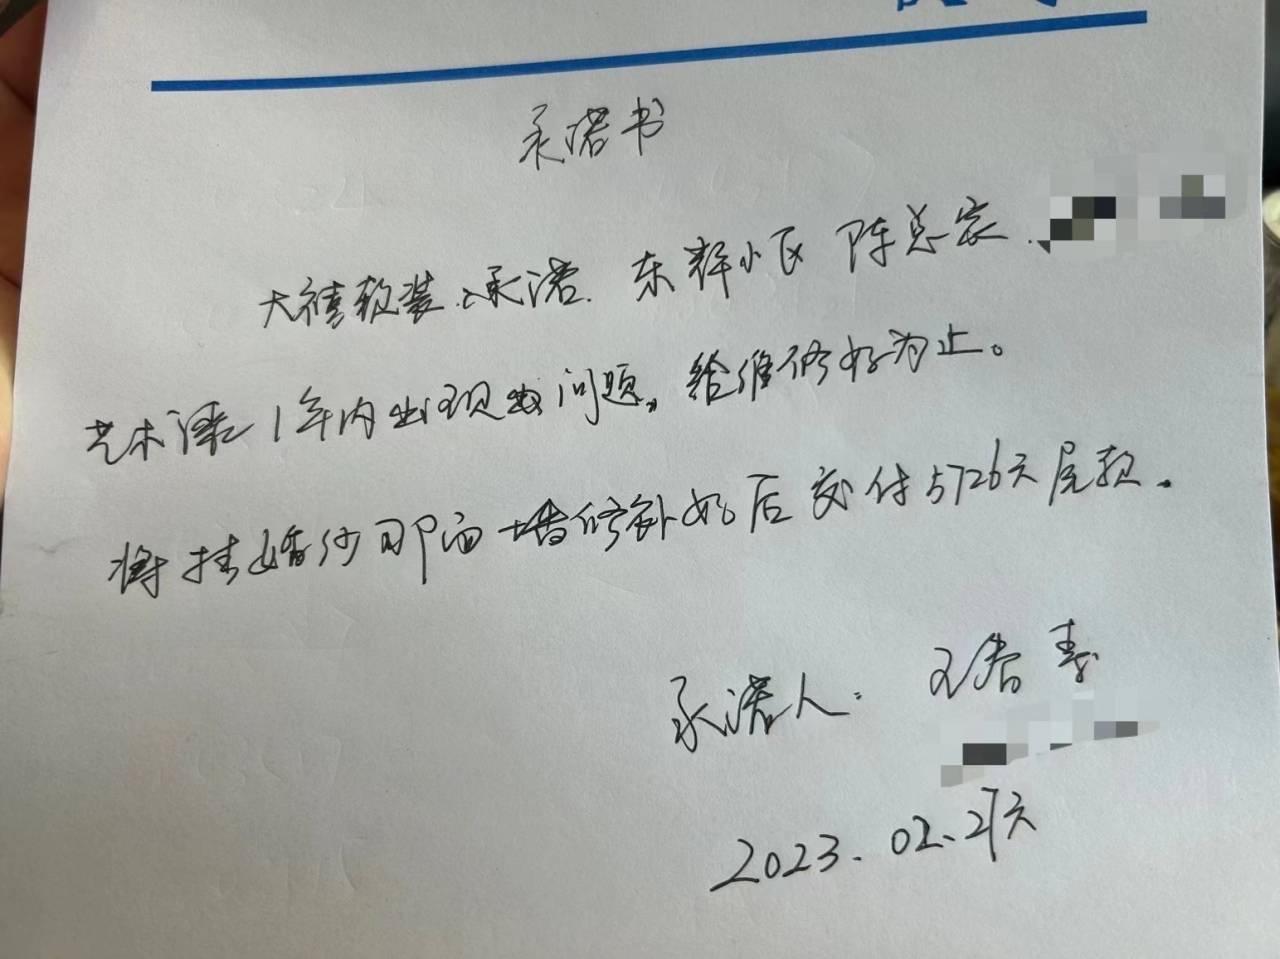 承诺书
大禧软装承诺. 东辉小区 陈总家.
艺术漆1年内出现 问题, 给维修好为止。
将挂婚纱那面墙修补好后交付5726元尾款.
承诺人: 王春
2023.02.27